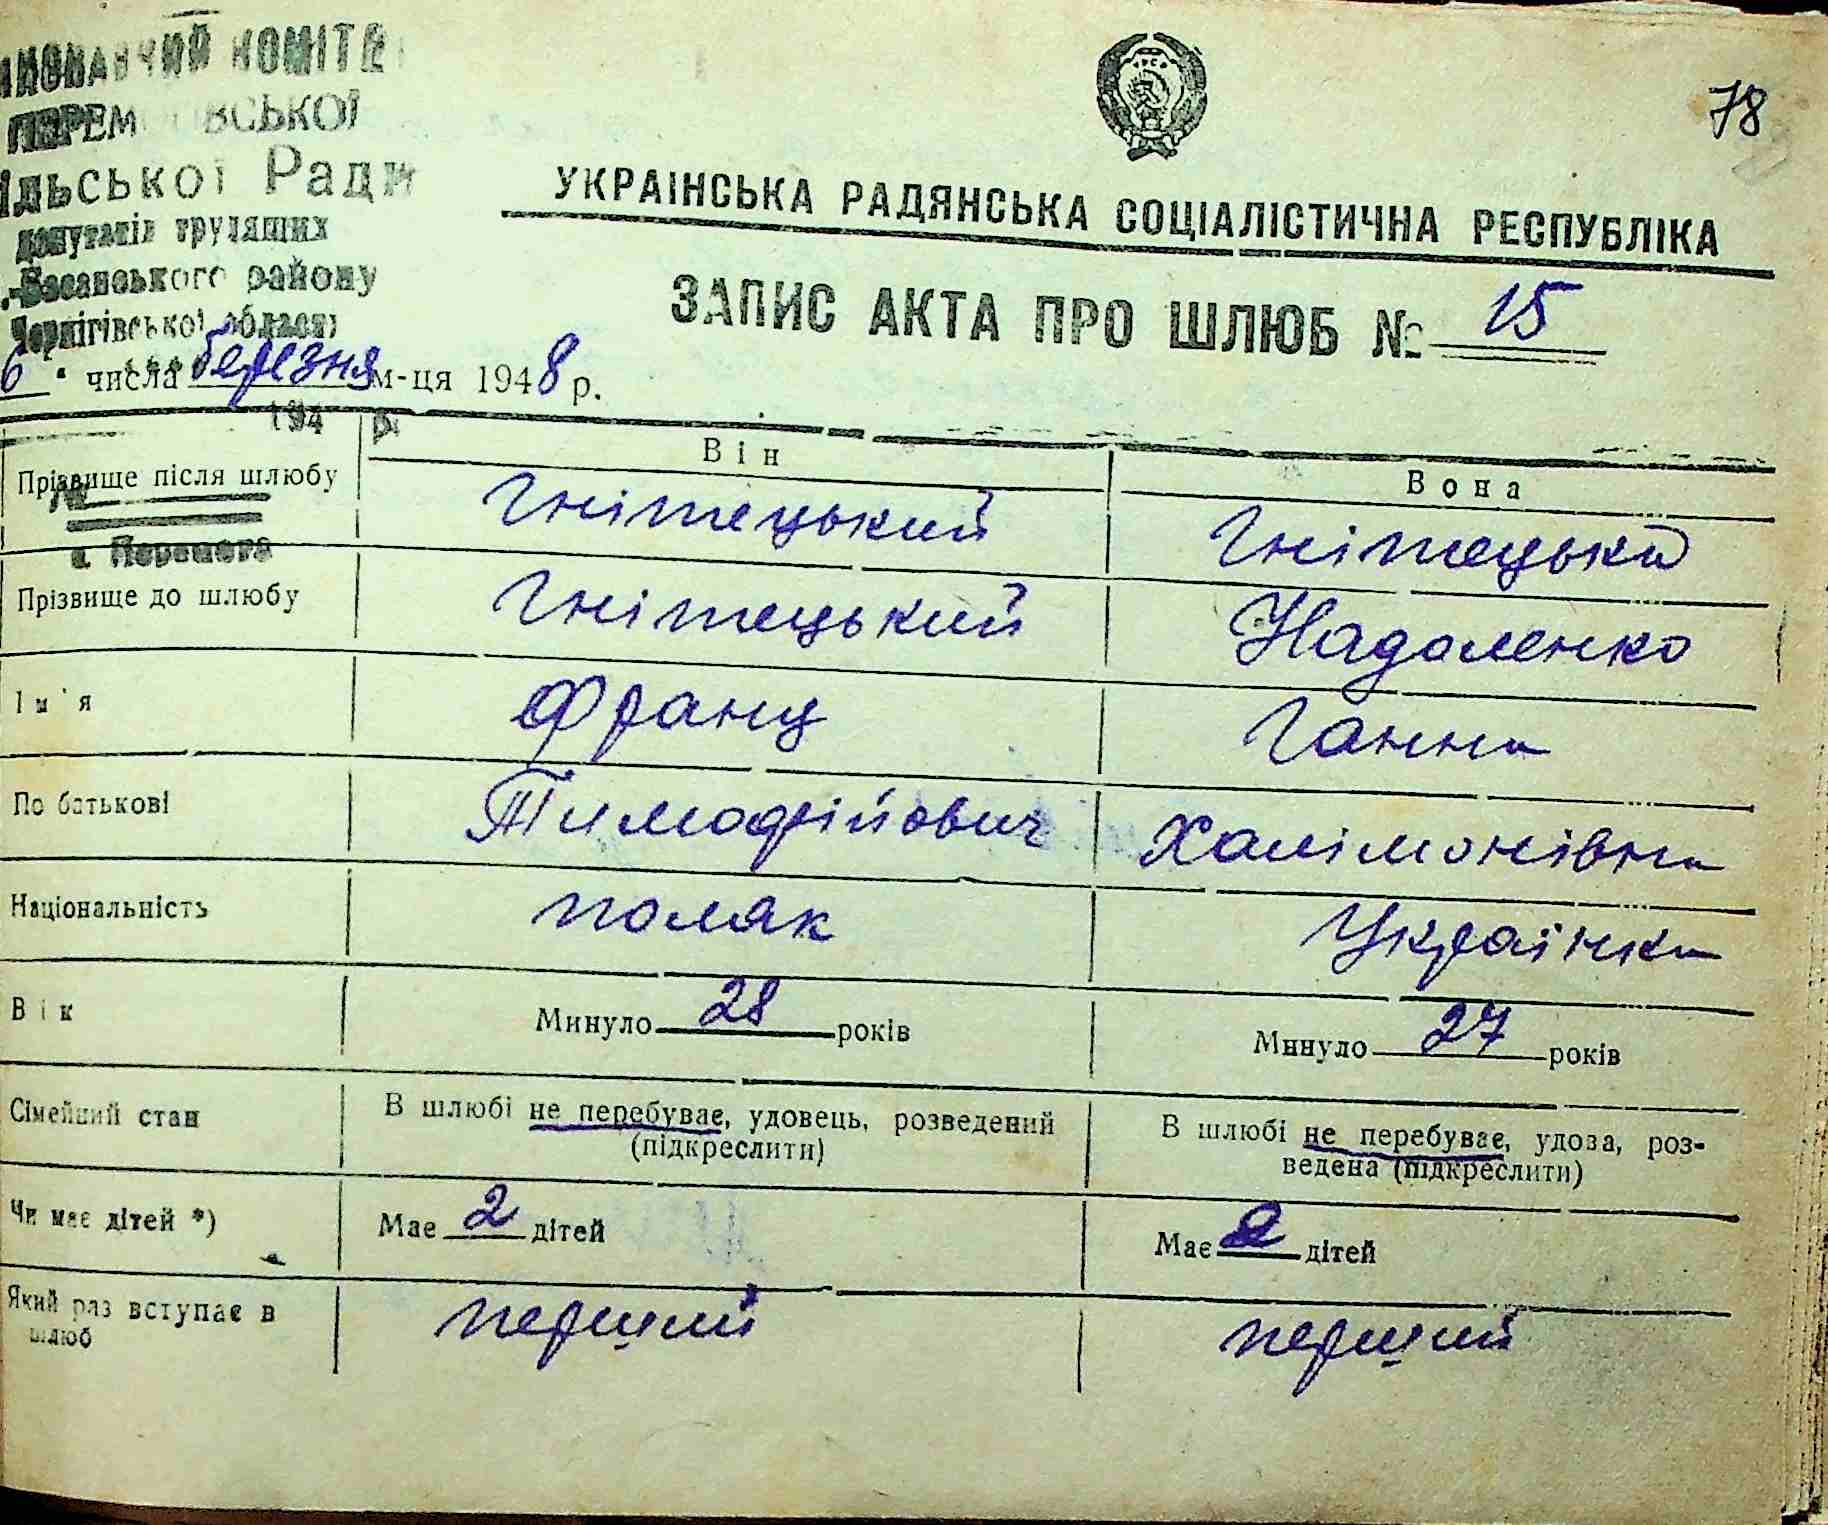 78
ПЕРЕМ ВСЬКОЇ
Ради
депутатів трудящих
району
Чернігівської області
УКРАЇНСЬКА РАДЯНСЬКА СОЦІАЛІСТИЧНА РЕСПУБЛІКА
ЗАПИС АКТА ПРО ШЛЮБ № 15
6 " числа березня м-ця 1948 р.
194 р.
Він Вона
Прізвище після шлюбу Гніпецький Гніпецька
№
с. Перемога
Прізвище до шлюбу Гніпецький Надоленко
Ім'я Франц Ганна
По батькові Тимофійович Халімонівна
Національність поляк Українка
Вік Минуло 28 років Минуло 27 років
Сімейний стан В шлюбі не перебуває, удовець, розведений В шлюбі не перебуває, удова, роз-
(підкреслити) ведена (підкреслити)
Чи має дітей *) Має 2 дітей Має 2 дітей
Який раз вступає в перший перший
шлюб